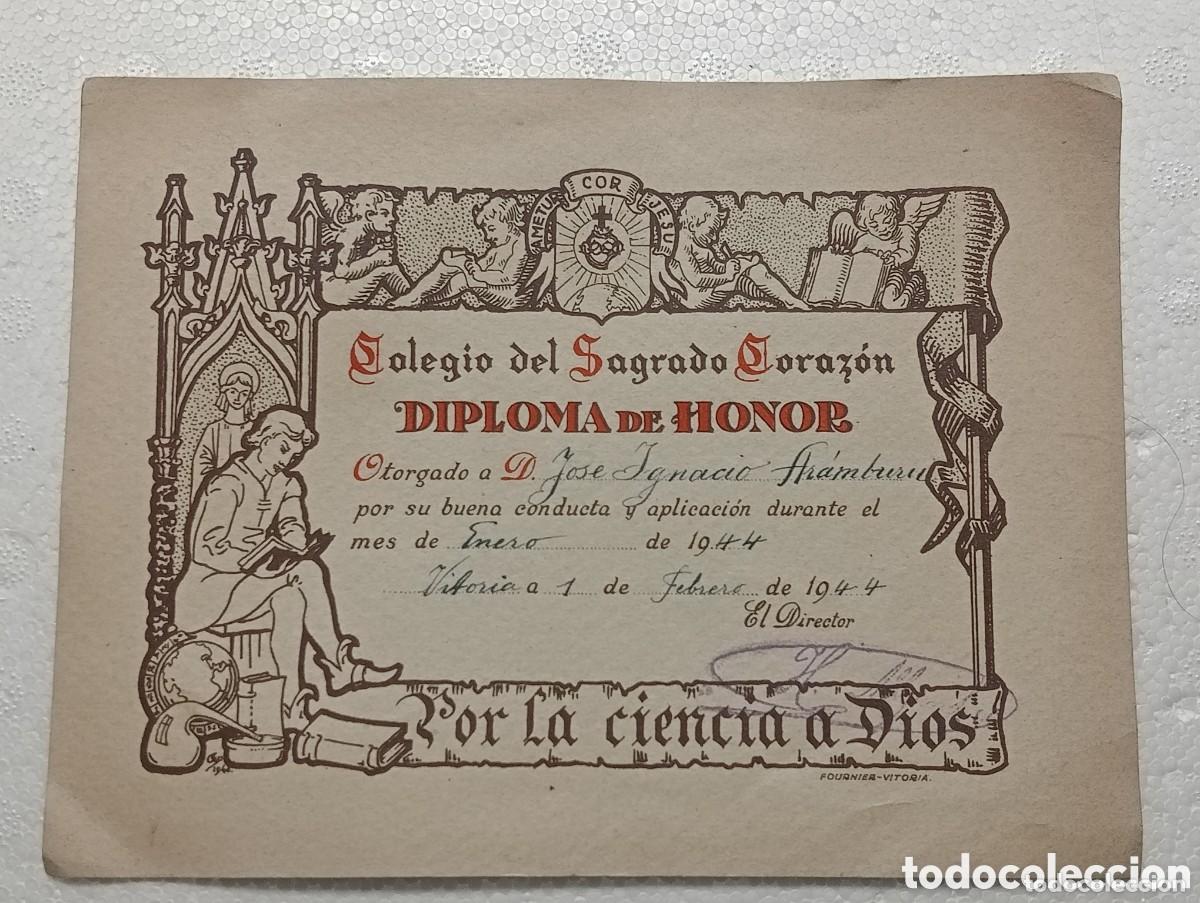 AMETUR COR JESU
Colegio del Sagrado Corazón
DIPLOMA DE HONOR
Otorgado a D. Jose Ignacio Arámburu
por su buena conducta y aplicación durante el
mes de Enero de 1944
Vitoria a 1 de Febrero de 1944
El Director
Por la ciencia a Dios
FOURNIER-VITORIA.
todocoleccion
todocoleccion